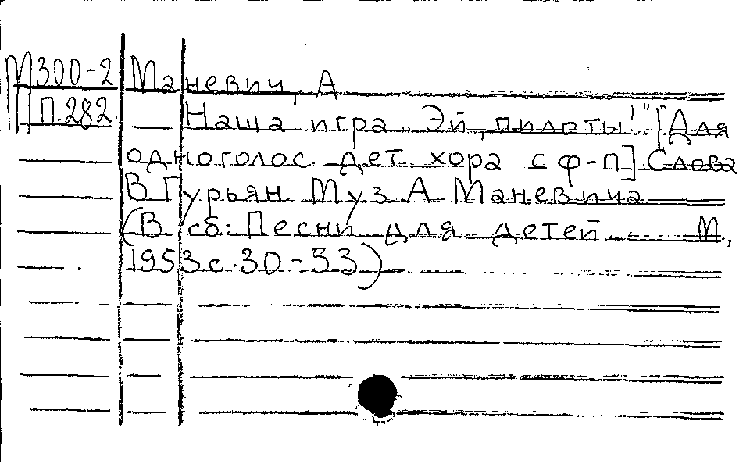 М300-2 Маневич, А
П282 Наша игра. Эй, пилоты!" [Для
одноголос. дет. хора с ф-п] Слова
В Гурьян Муз А Маневича
(В сб: Песни для детей ... М,
1953 с. 30-33)